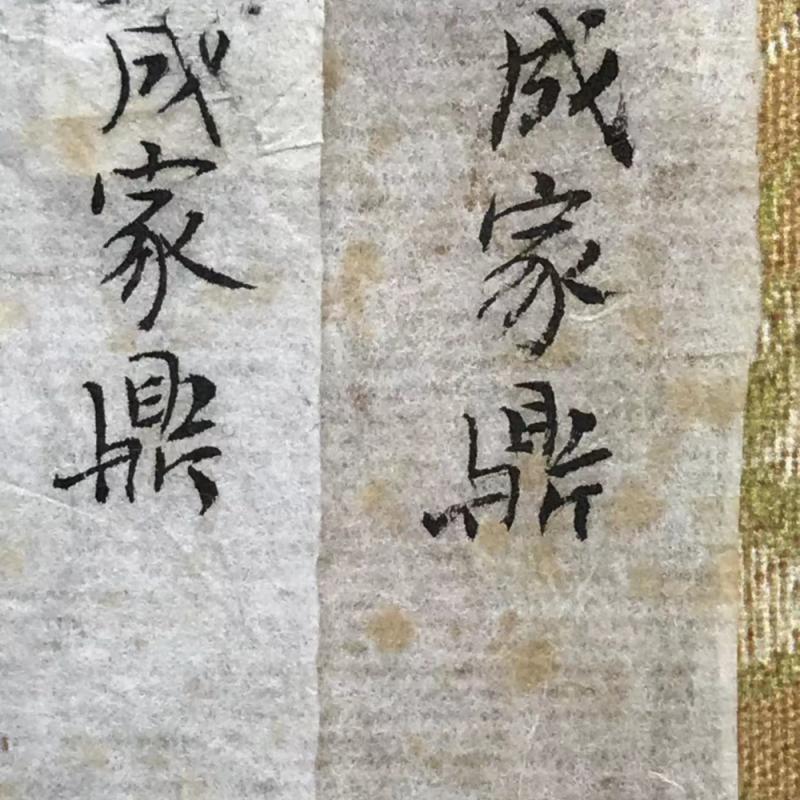 成家鼎
成家鼎